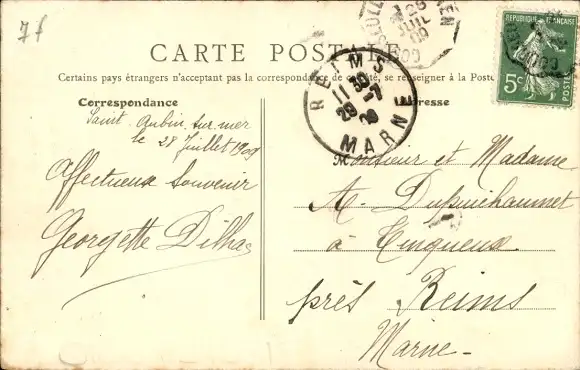 7f
CARTE POSTALE
Certains pays étrangers n'acceptant pas la correspondance de ce côté, se renseigner à la Poste
Correspondance
Adresse
Saint-Aubin-sur-mer
le 28 Juillet 1909
Affectueux Souvenir
Georgette Dilhac
Monsieur et Madame
A. Dupuichaumet
à Tinqueux
près Reims
Marne
REIMS
11 30
29 -7
09
MARNE
JUIL
09
RÉPUBLIQUE FRANÇAISE
5c
POSTES